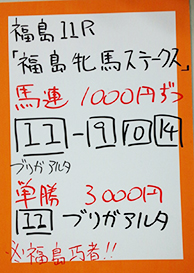 福島11R
「福島牝馬ステークス」
馬連 1000円ずつ
11-9 10 14
ブリガアルタ
単勝 3000円
11 ブリガアルタ
※福島巧者!!